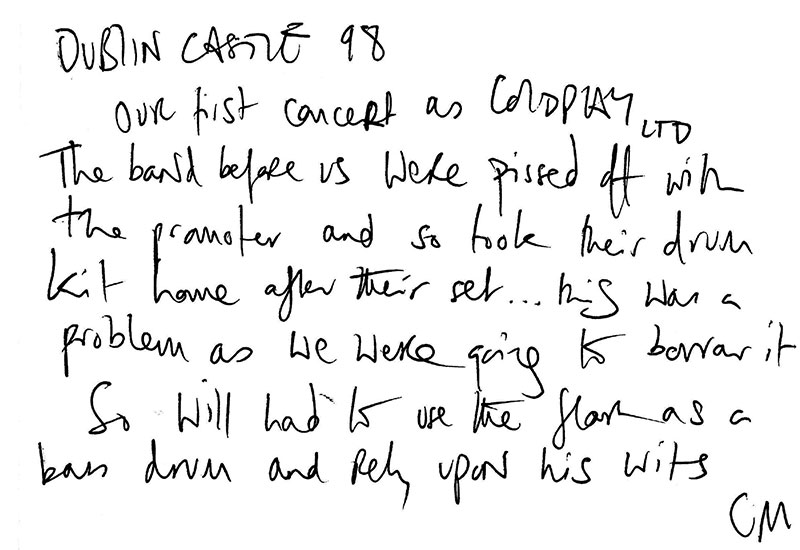 DUBLIN CASTLE 98
OUR first concert as COLDPLAY LTD
The band before us were pissed off with
the promoter and so took their drum
kit home after their set... this was a
problem as we were going to borrow it
So Will had to use the floor as a
bass drum and rely upon his wits
CM